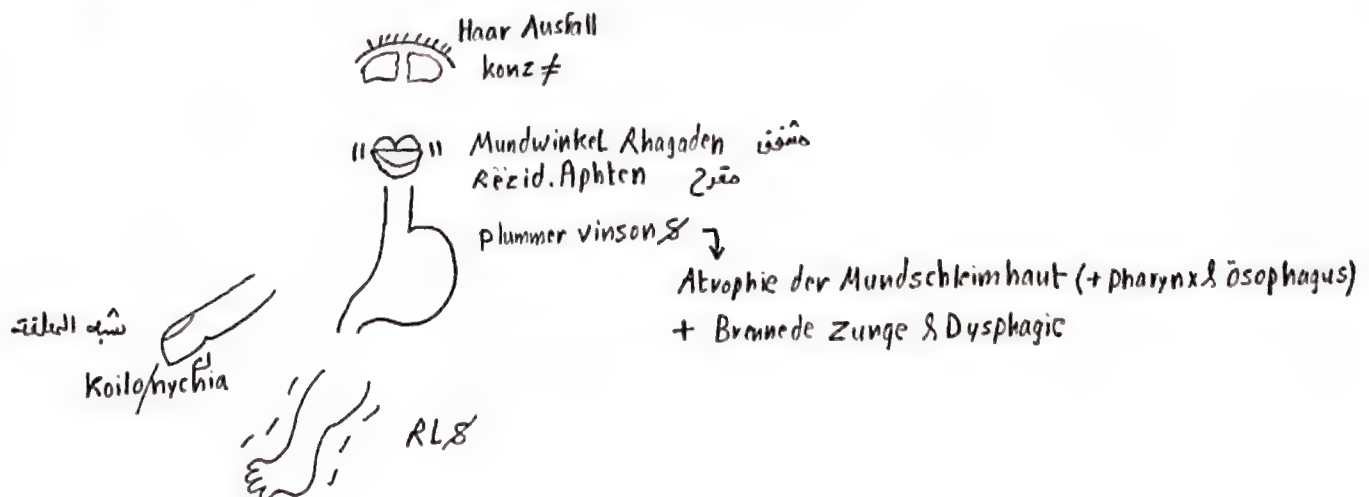 Haar Ausfall
konz ≠
Mundwinkel Rhagaden مشقق
Rezid. Aphten مقرح
plummer vinson $
Atrophie der Mundschleimhaut (+ pharynx & ösophagus)
+ Brennede Zunge & Dysphagie
شبه الملعقة
Koilo/nychia
RL $